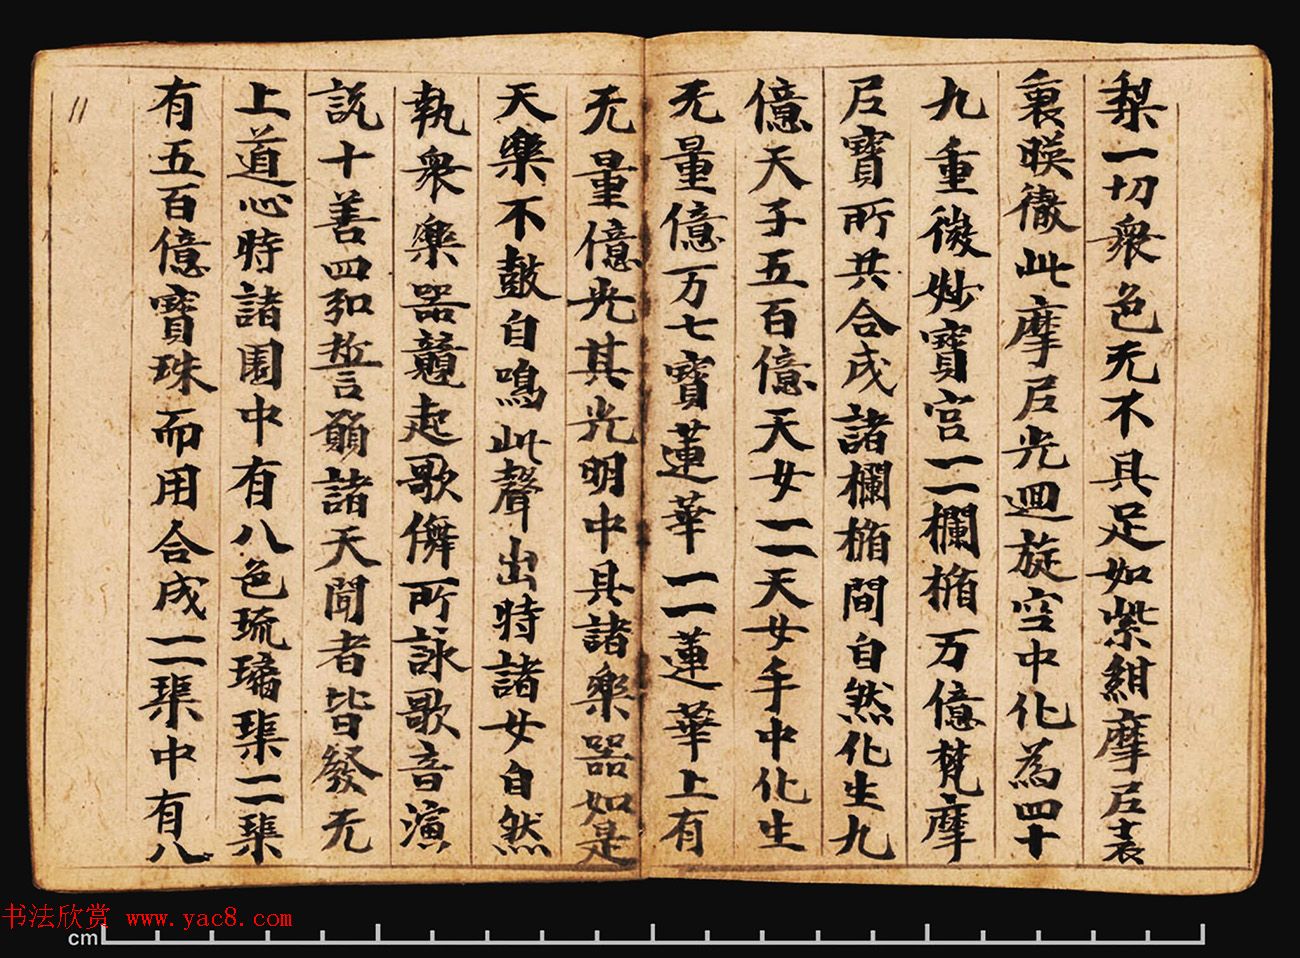 梨一切衆色无不具足如紫紺摩尼表
裏暎徹此摩尼光迴旋空中化為四十
九重微妙寳宫一一欄楯万億梵摩
尼寳所共合成諸欄楯間自然化生九
億天子五百億天女一一天女手中化生
无量億万七寳蓮華一一蓮華上有
无量億光其光明中具諸樂器如是
天樂不鼓自鳴此聲出時諸女自然
執衆樂器競起歌儛所詠歌音演
說十善四弘誓願諸天聞者皆發无
上道心時諸園中有八色琉璃渠一一渠
有五百億寳珠而用合成一一渠中有八
11
书法欣赏 www.yac8.com
cm